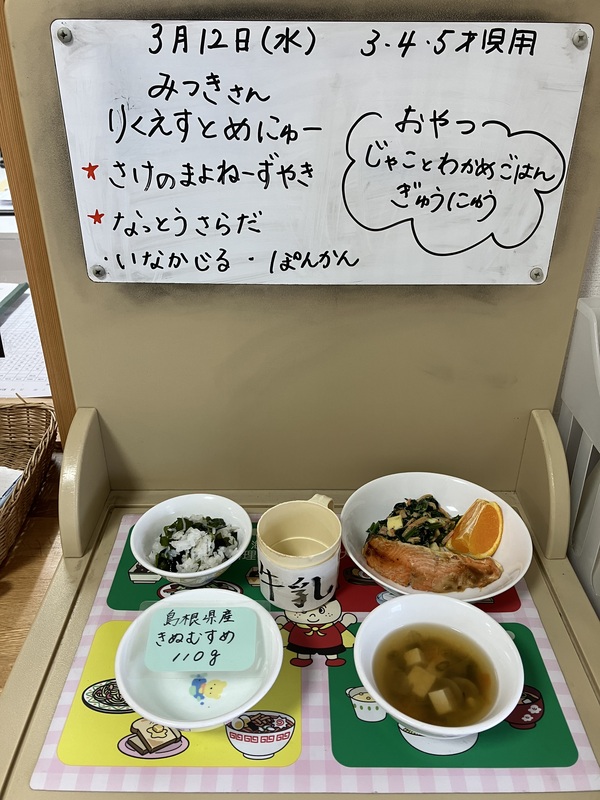 3月12日(水) 3・4・5才児用
みつきさん
りくえすとめにゅー
★さけのまよねーずやき
★なっとうさらだ
・いなかじる ・ぽんかん
おやつ
じゃことわかめごはん
ぎゅうにゅう
牛乳
島根県産
きぬむすめ
110g